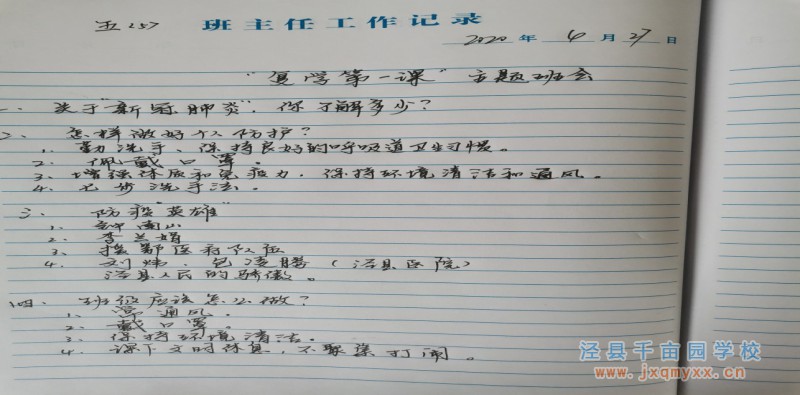 五257 班主任工作记录
2020 年 4 月 27 日
"复学第一课"主题班会
一、关于"新冠肺炎"，你了解多少？
二、怎样做好个人防护？
1. 勤洗手、保持良好的呼吸道卫生习惯。
2. 佩戴口罩。
3. 增强体质和免疫力，保持环境清洁和通风。
4. 七步洗手法。
三、"防疫英雄"
1. 钟南山
2. 李兰娟
3. 援鄂医疗队伍
4. 刘炜、包凌腾（泾县医院）
泾县人民的骄傲。
四、班级应该怎么做？
1. 常通风。
2. 戴口罩。
3. 保持环境清洁。
4. 课下文明休息，不聚集打闹。
泾县千亩园学校
www.jxqmyxx.cn